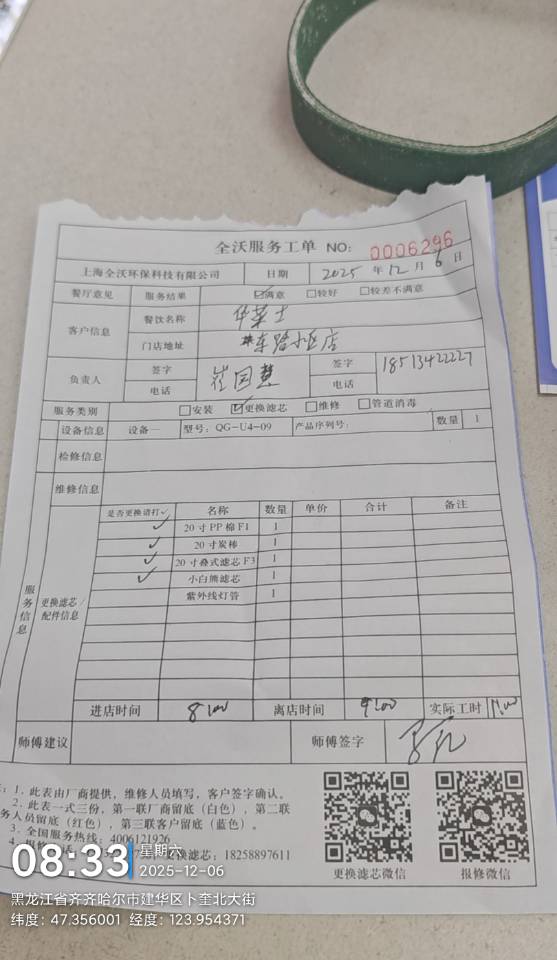 全沃服务工单 NO: 0006296
上海全沃环保科技有限公司 日期 2025 年 12 月 6 日
餐厅意见 服务结果 ☑满意 □较好 □较差不满意
客户信息 餐饮名称 华莱士
门店地址 东路小区店
负责人 签字 崔国慧 签字
电话 电话 18513422227
服务类别 □安装 ☑更换滤芯 □维修 □管道消毒
设备信息 设备一 型号: QG-U4-09 产品序列号: 数量 1
检修信息
维修信息
服务信息 更换滤芯/配件信息
是否更换请打✓ 名称 数量 单价 合计 备注
✓ 20寸PP棉F1 1
✓ 20寸炭棒 1
✓ 20寸叠式滤芯F3 1
✓ 小白熊滤芯 1
紫外线灯管 1
进店时间 8:00 离店时间 9:00 实际工时
师傅建议 师傅签字
1. 此表由厂商提供,维修人员填写,客户签字确认。
2. 此表一式三份,第一联厂商留底(白色),第二联
务人员留底(红色),第三联客户留底(蓝色)。
3. 全国服务热线: 4006121926
4. 报修 更换滤芯: 18258897611
更换滤芯微信 报修微信
08:33 星期六
2025-12-06
黑龙江省齐齐哈尔市建华区卜奎北大街
纬度: 47.356001 经度: 123.954371